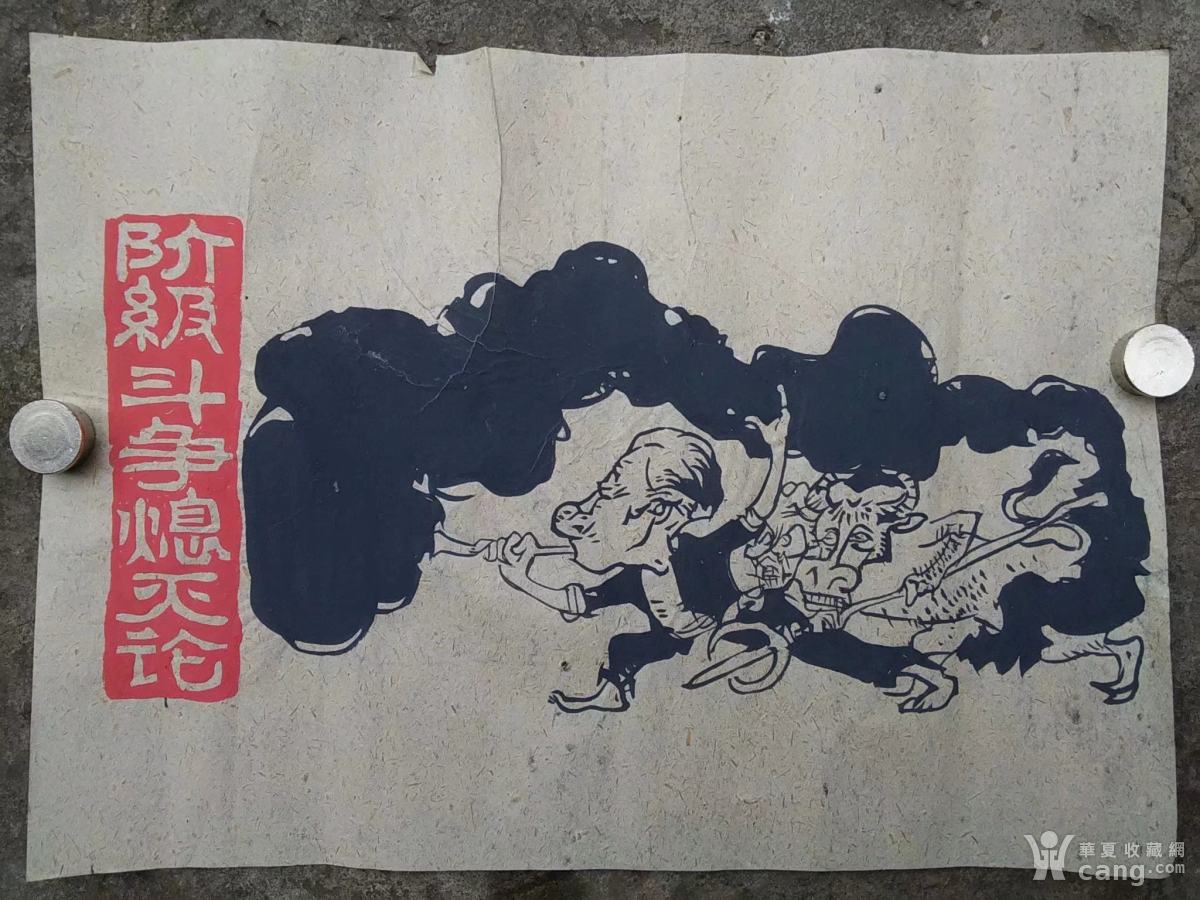 阶級斗争熄灭论
華夏收藏網
cang.com